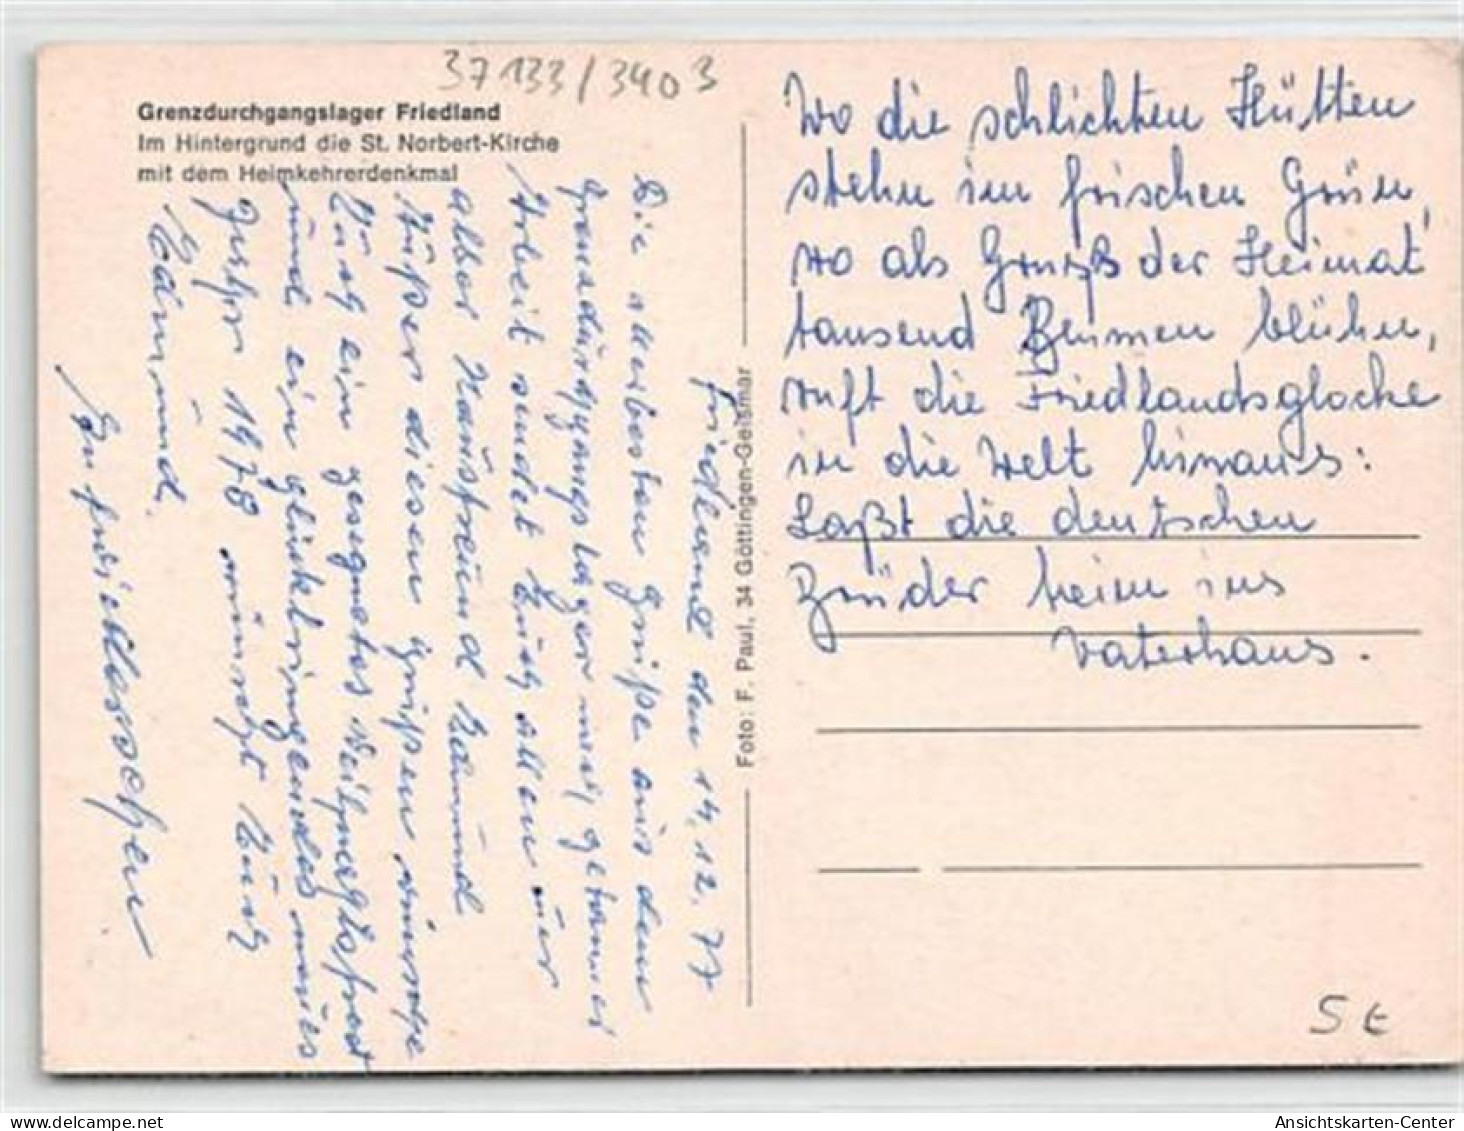 37133/3403
Grenzdurchgangslager Friedland
Im Hintergrund die St. Norbert-Kirche
mit dem Heimkehrerdenkmal
Friedland den 14.12.77
Die allerbesten Grüße aus dem
Grenzdurchgangslager nach getaner
Arbeit sendet Euch allen Euer
alter Hausfreund Edmund
Außer diesen Grüßen wünsche
Euch ein gesegnetes Weihnachtsfest
und ein glückbringendes neues
Jahr 1978 wünscht Euch
Edmund.
Foto: F. Paul, 34 Göttingen-Geismar
Wo die schlichten Hütten
stehn im frischen Grün,
wo als Gruß der Heimat
tausend Blumen blühn,
ruft die Friedlandsglocke
in die Welt hinaus:
Laßt die deutschen
Brüder heim ins
Vaterhaus.
5 €
Ansichtskarten-Center